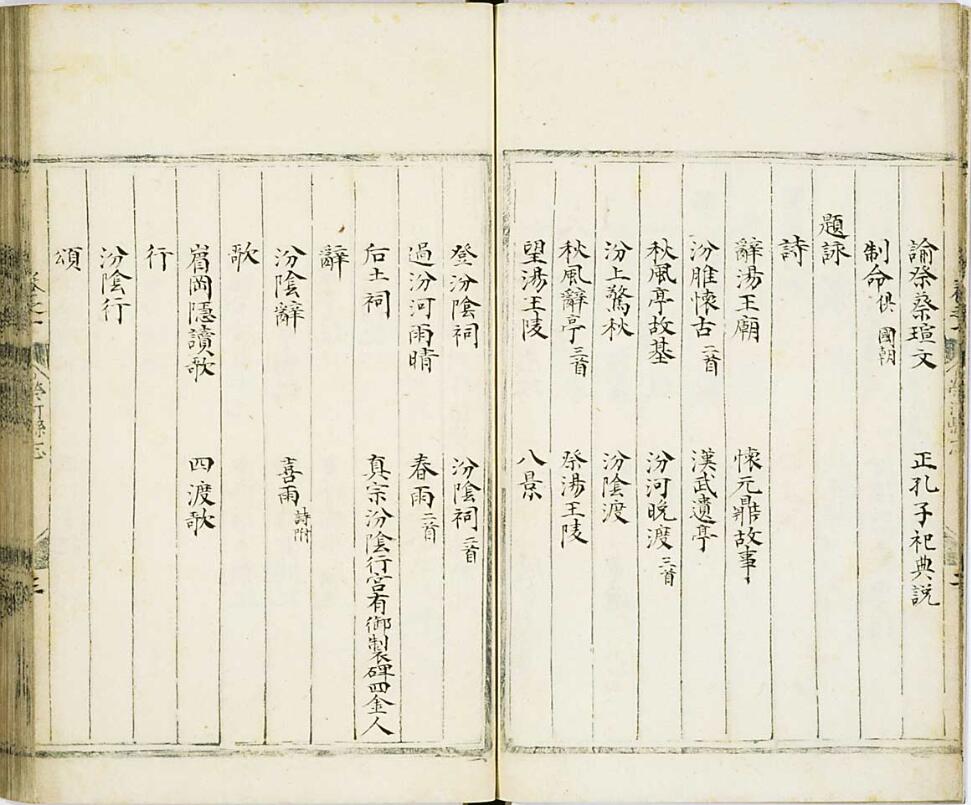 諭祭蔡瑄文 正孔子祀典説
制命俱國朝
題詠
詩
辭湯王廟 懷元鼎故事
汾脽懷古二首 漢武遺亭
秋風亭故基 汾河晚渡三首
汾上驚秋 汾陰渡
秋風辭亭三首 祭湯王陵
望湯王陵 八景
登汾陰祠 汾陰祠二首
過汾河雨晴 春雨二首
后土祠 真宗汾陰行宮有御製碑四金人
辭
汾陰辭 喜雨詩附
歌
眉岡隱讀歌 四渡歌
行
汾陰行
頌
榮河縣志